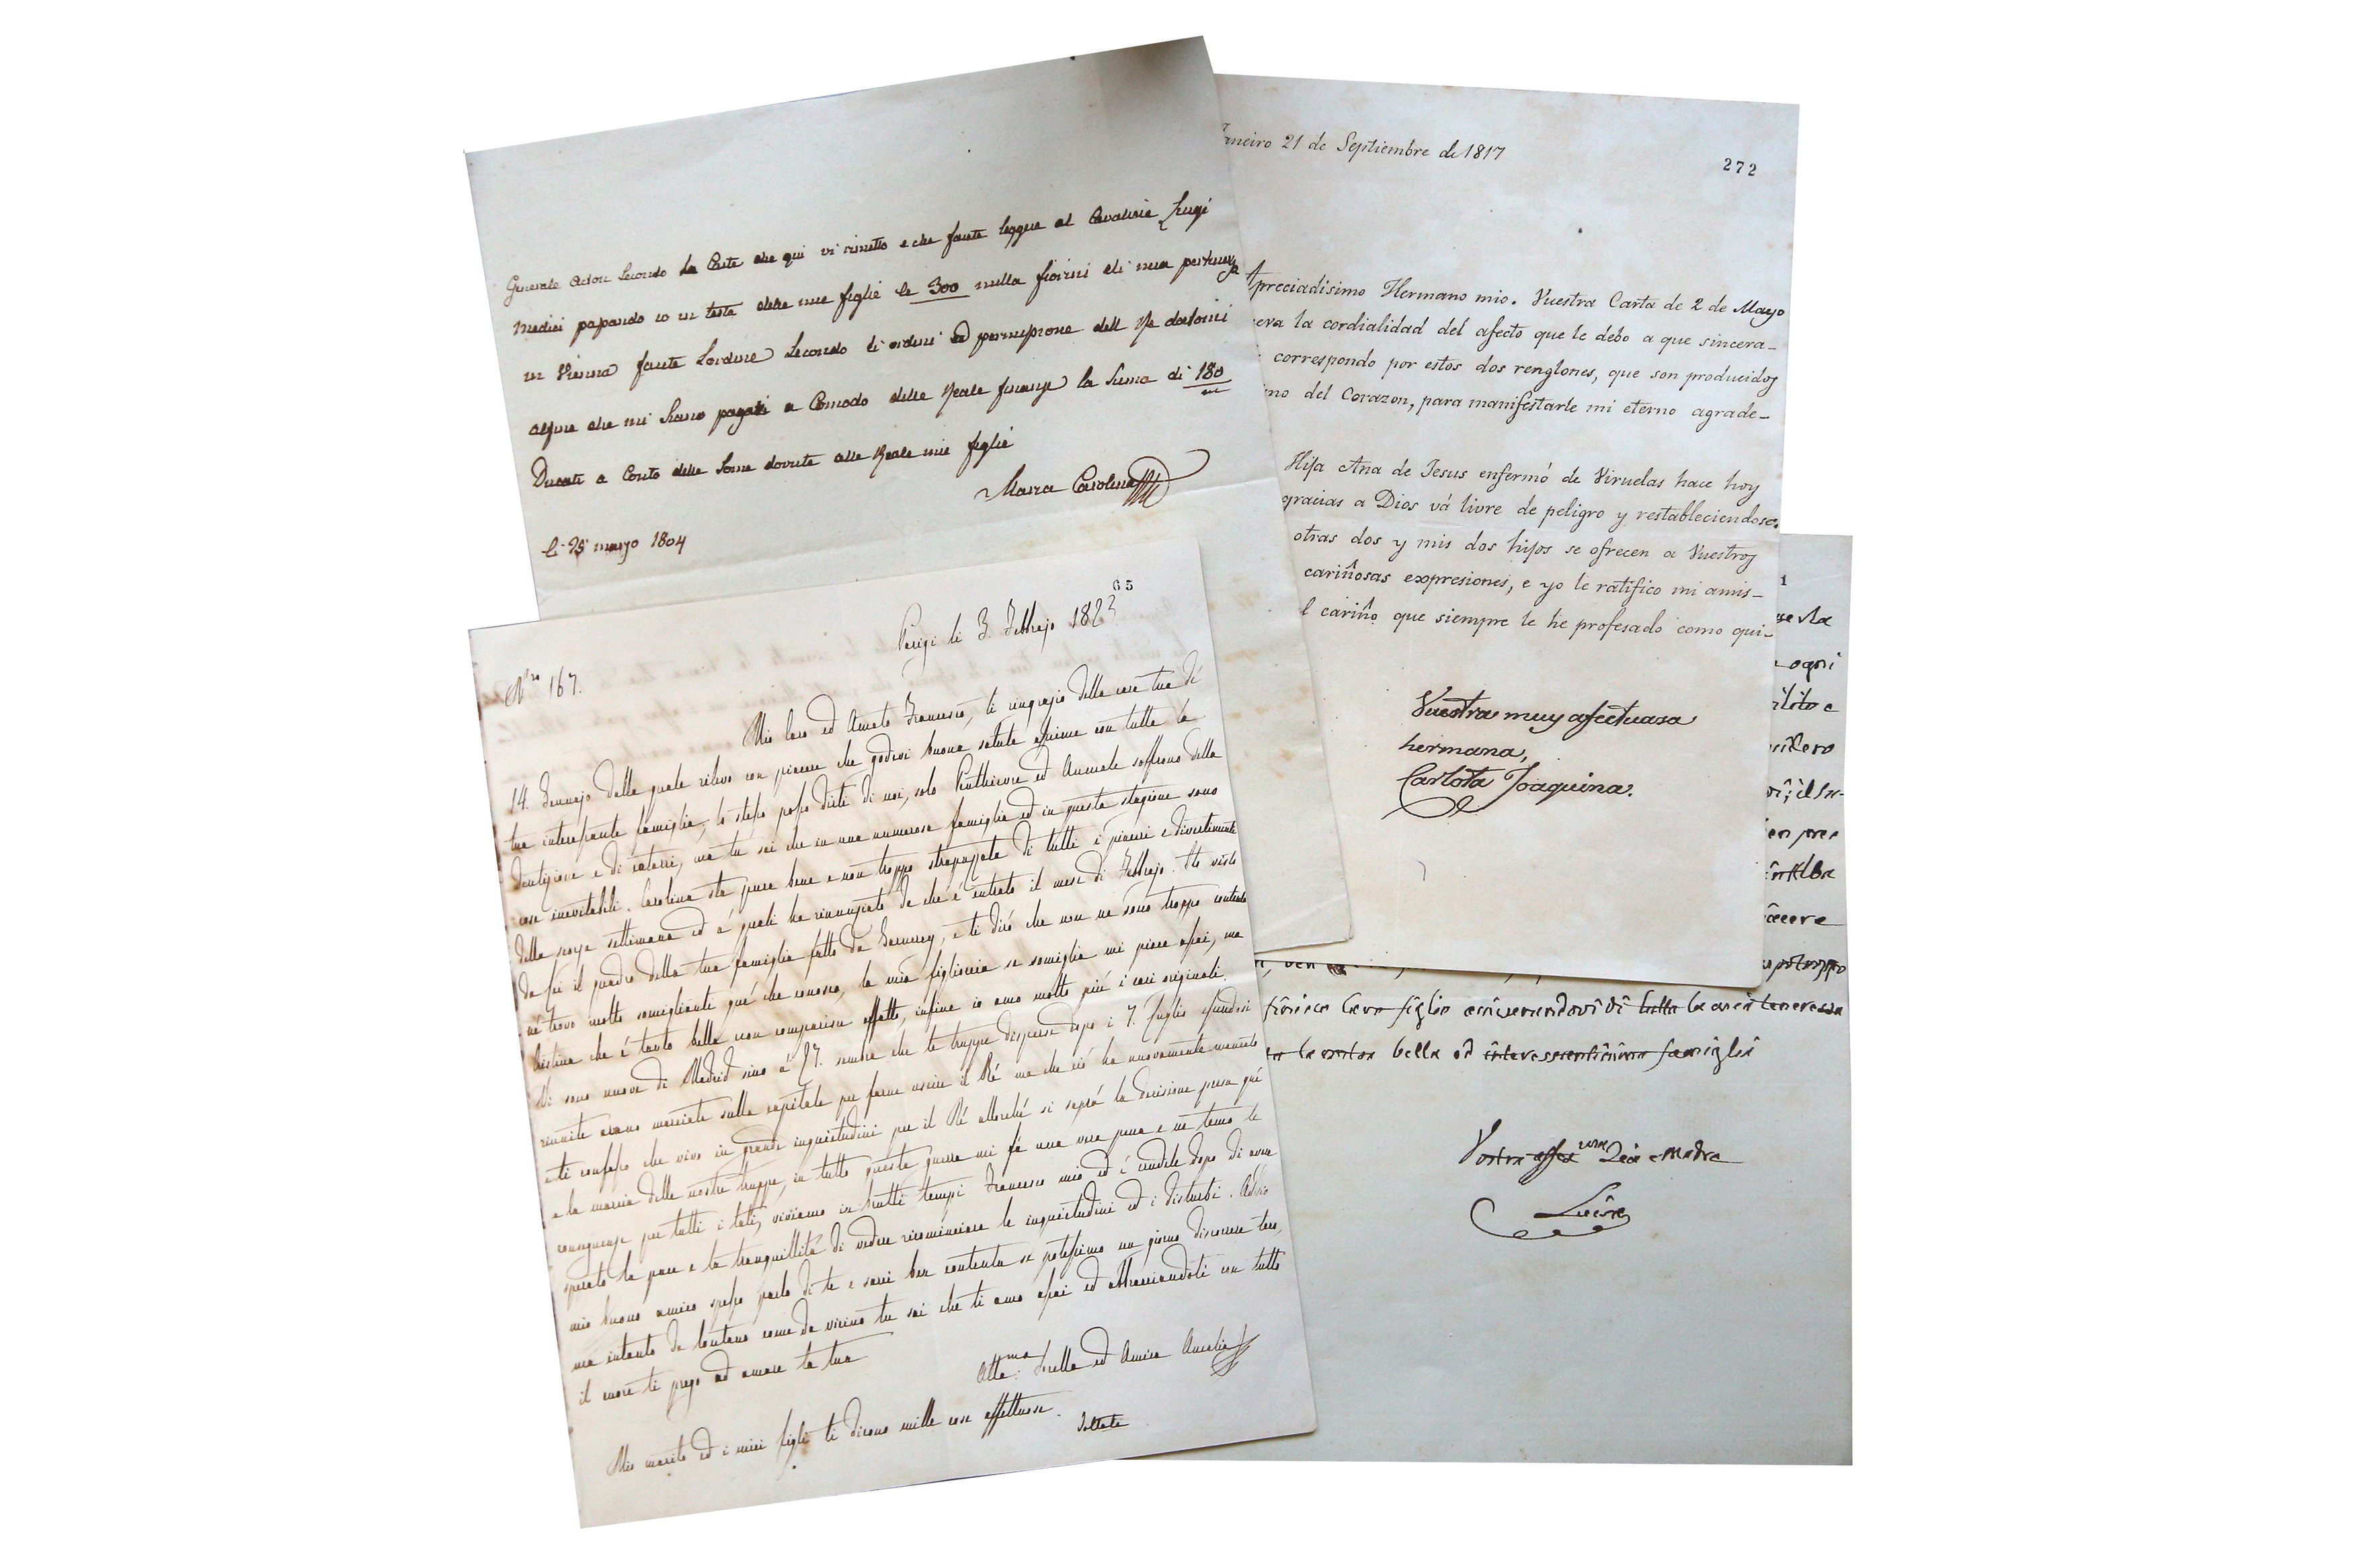 Generale Acton Secondo la Carte che qui vi rimetto e che farete leggere al Cavaliere Luigi
Medici passando io in testa delle mie figlie le 300 milla fiorini di mia pertinenza
in Vienna farete Lordine Secondo li ordini ed permissione dell Re datomi
affine che mi siano pagati a Comodo delle Reale finanze la Suma di 180
m
Ducati a Conto delle Some dovute alle Reale mie figlie
Maria Carolina
li 25 marzo 1804
Janeiro 21 de Septiembre de 1817
272
Apreciadisimo Hermano mio. Vuestra Carta de 2 de Mayo
eva la cordialidad del afecto que le debo a que sincera-
correspondo por estos dos renglones, que son producidos
mo del Corazon, para manifestarle mi eterno agrade-
Hija Ana de Jesus enfermó de Viruelas hace hoy
gracias a Dios vá livre de peligro y restableciendose.
otras dos y mis dos hijos se ofrecen a Vuestros
cariñosas expresiones, e yo le ratifico mi amis-
l cariño que siempre le he profesado como qui-
Vuestra muy afectuosa
hermana,
Carlota Joaquina.
65
Parigi li 3. Febbrajo 1823
Nro 167.
Mio Caro ed Amato Francesco, ti ringrazio della cara tua di
14. Gennajo dalla quale rilevo con piacere che godevi buona salute assieme con tutta la
tua interessante famiglia, lo stesso posso dirti di noi, solo Penthievre ed Aumale soffrono della
dentizione e di catarri, ma tu sai che in una numerosa famiglia ed in questa stagione sono
cose inevitabili. Carolina sta pure bene e non troppo strapazzata di tutti i piaceri e divertimenti
della scorsa settimana ed a' quali ha rinunziato da che è entrato il mese di Febbrajo. Ho visto
da lei il quadro della tua famiglia fatto da Gernerey, e ti dirò che non ne sono troppo contenta
né trovo molto somigliante qué che conosco, la mia figlioccia se somiglia mi piace assai, ma
Cristina che è tanto bella non comparisce affatto, infine io amo molto più i cari originali.
Vi sono nuove di Madrid sino a' 27. sembra che le truppe disperse dopo i 7. luglio essendosi
riunite erano marciate sulla capitale per farne uscire il Ré ma che ciò ha nuovamente mancato
e ti confesso che vivo in grandi inquietudini per il Ré allorché si saprà la decisione presa qui
e la marcia delle nostre truppe, in tutto questa guerra mi fà una vera pena e ne temo le
conseguenze per tutti i lati, viviamo in brutti tempi Francesco mio ed è crudele dopo di aver
sperato la pace e la tranquillità di vedere ricominciare le inquietudini ed i disturbi. Addio
mio buono amico spesso parlo di te e sarei ben contenta se potessimo un giorno discorrere teco,
ma intanto da lontano come da vicino tu sai che ti amo assai ed abbracciandoti con tutto
il cuore ti prego ad amare la tua
Atta.ma Sorella ed Amica Amelia
Mio marito ed i miei figli ti dicono mille cose affettuose.
Voltate
1
ogni
in Alba
acere
purtroppo
finisco Caro figlio assicurandovi di tutta la mia tenerezza
la vostra bella ed interessantissima famiglia
Vostra affez.ma Zia e Madre
Luisa